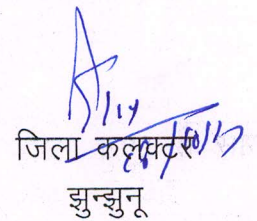 जिला कलक्टर
झुन्झुनू